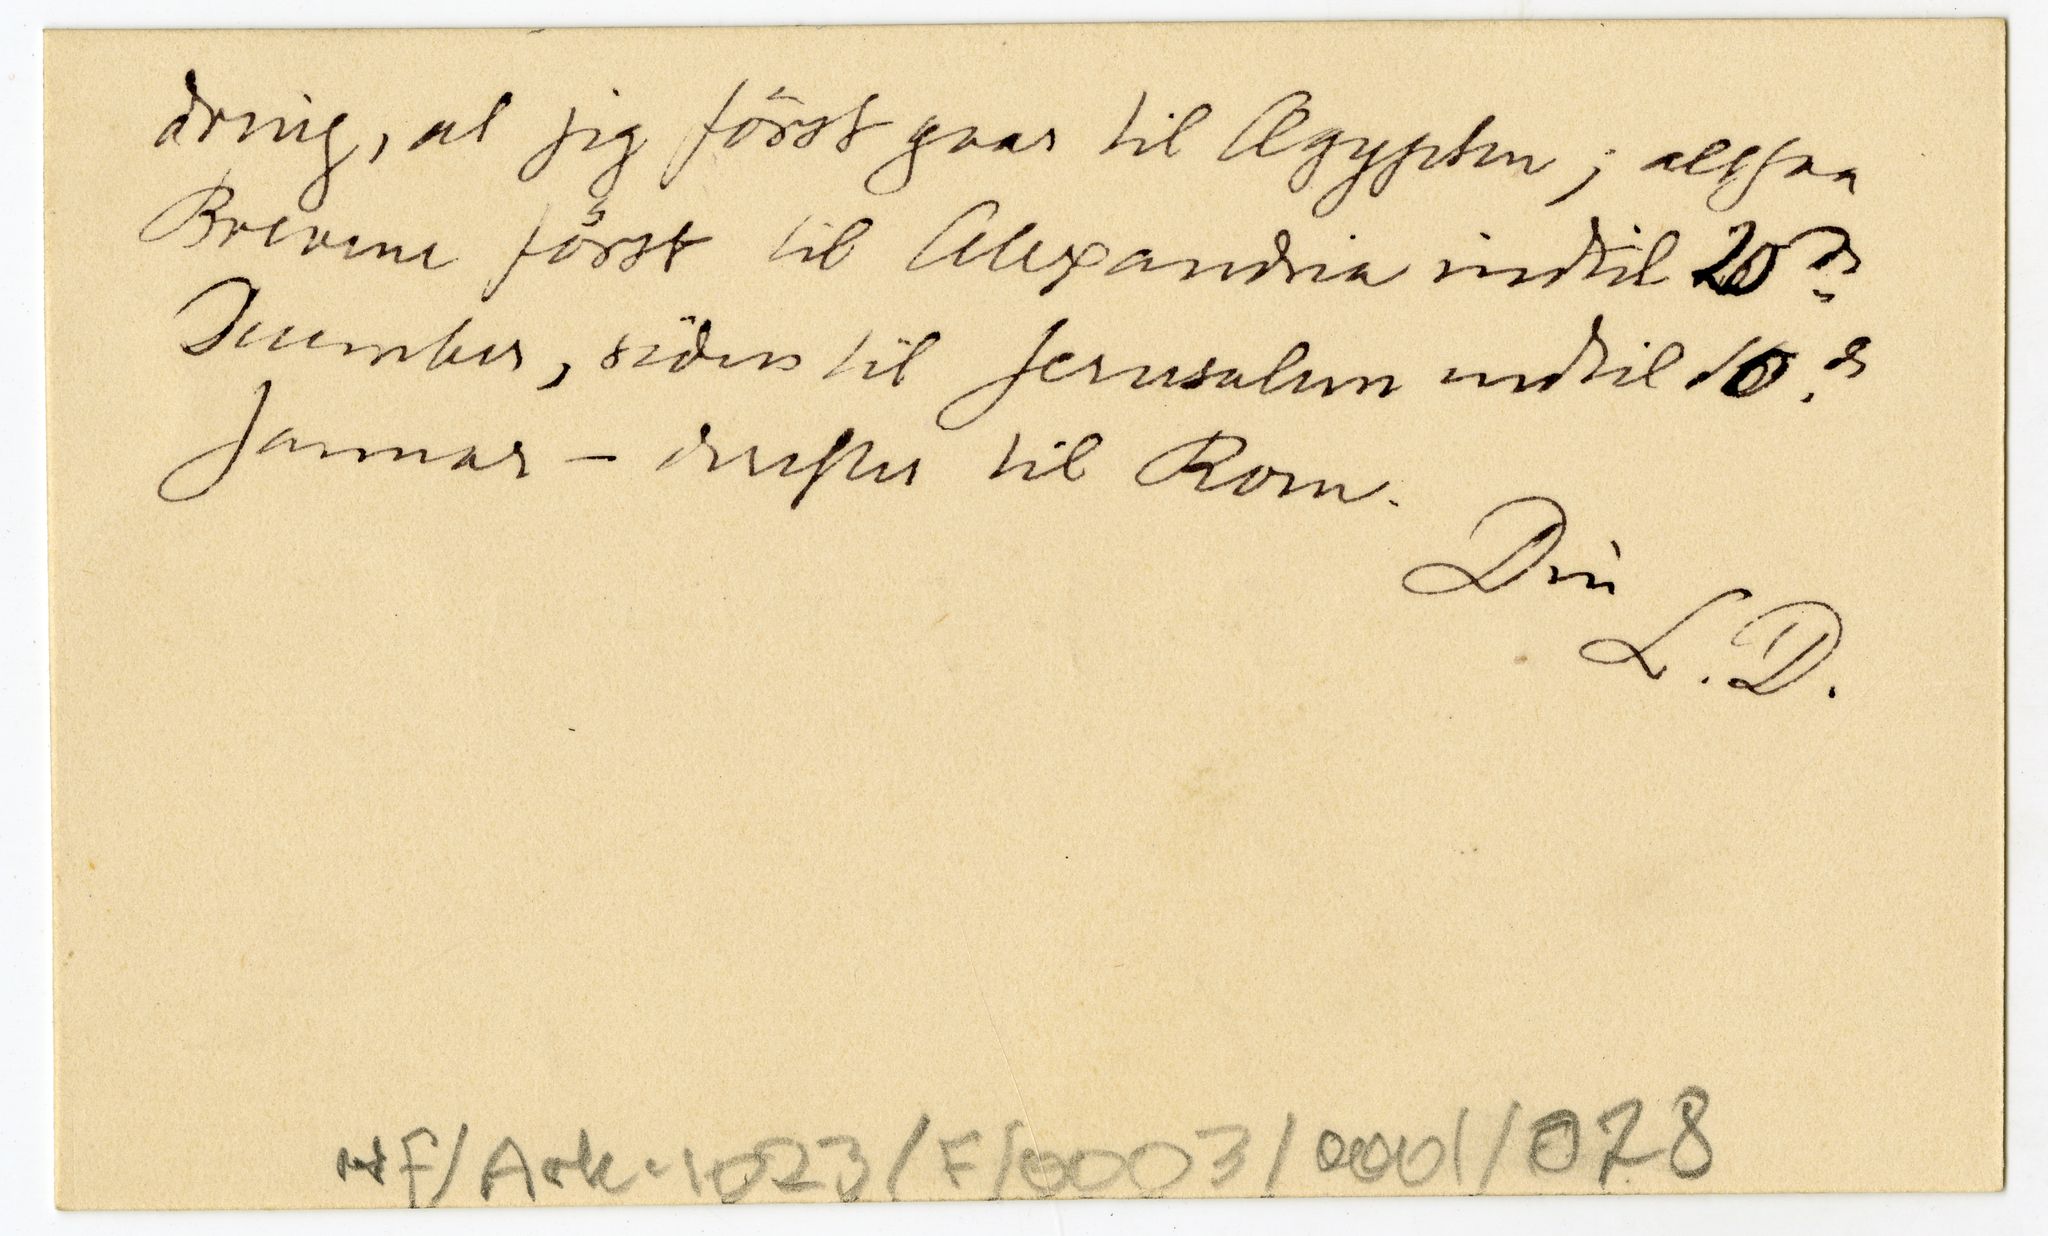 dring, at jeg först gaar til Ægypten; altsaa
Brevene först til Alexandria indtil 20de
December, siden til Jerusalem indtil 10.de
Januar – derefter til Rom.
Din
L. D.
NF/Ark-1023/F/0003/0001/028